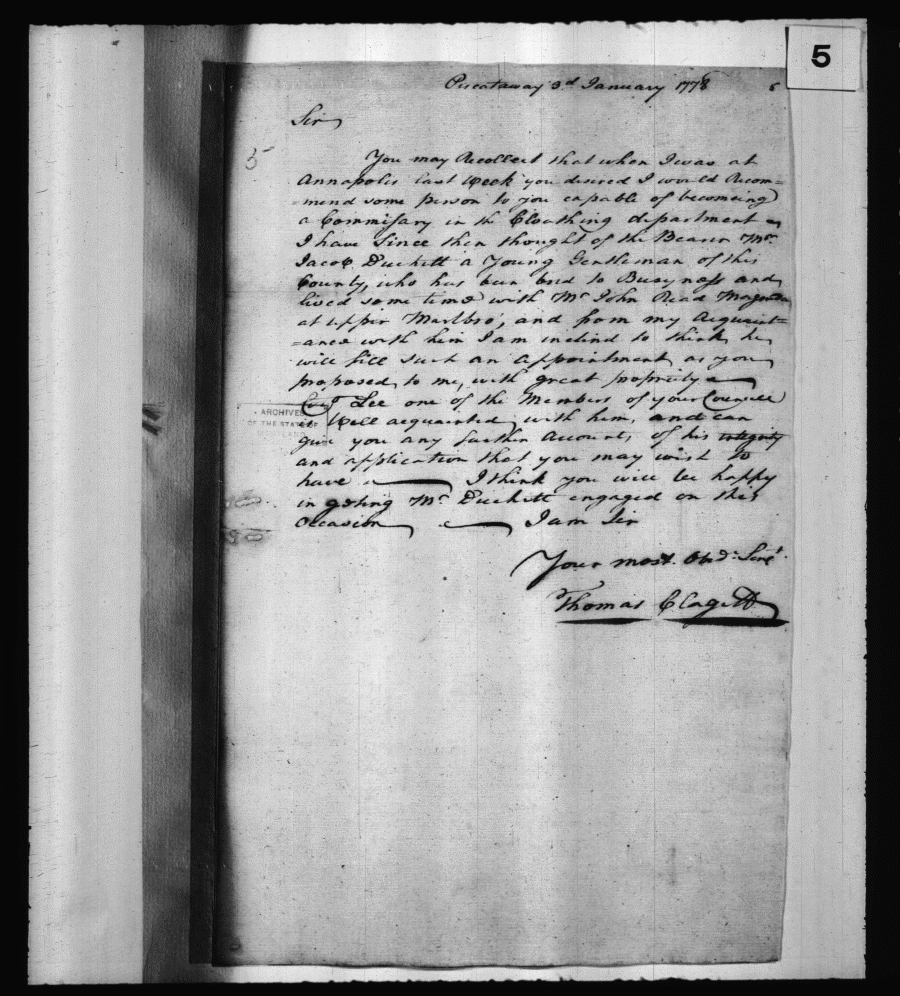 5
Piscataway 3d January 1778
Sir
5
You may Recollect that when I was at
Annapolis last Week you desired I would Recom=
=mend some person to you capable of becomeing
a Commissary in the Cloathing department
I have Since then thought of the Bearer Mr.
Jacob Duckett a Young Gentleman of this
County, who has been bred to Buisyness and
lived some time with Mr John Read Magruder
at upper Marlbro', and from my Acquaint=
=ance with him I am inclind to think he
will fill such an Appointment as you
proposed to me, with great propriety
Lee one of the Members of your Councill
is Well acquainted with him, and can
give you any further Accounts of his integrity
and application that you may wish to
have I think you will be happy
in geting Mr Duckett engaged on this
Occasion I am Sir
Your most Obdt Servt
Thomas Clagett
ARCHIVES
OF THE STATE OF
MARYLAND